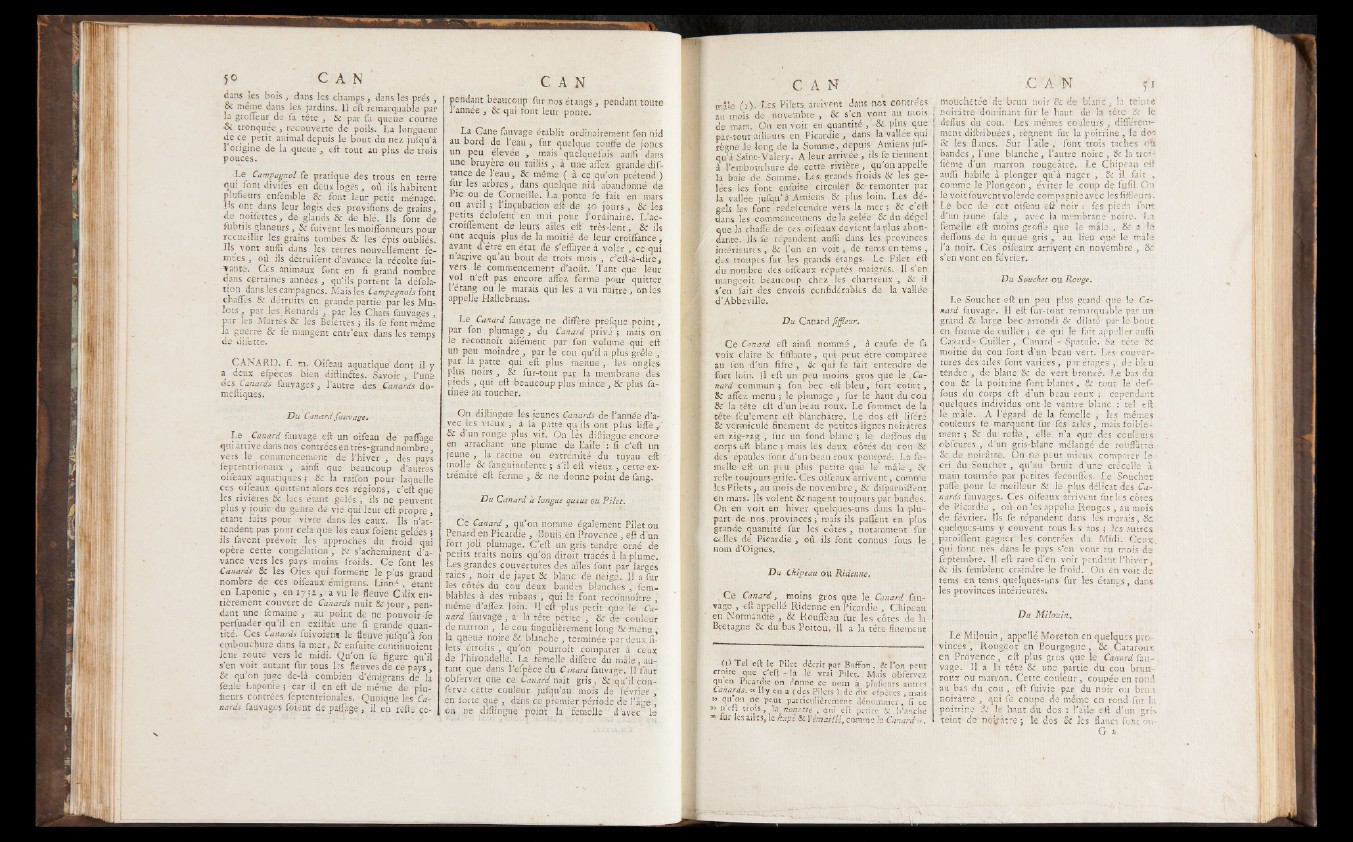 50 CAN
dans les bois, dans les champs, dans les prés,
& même dans les jardins. Il est remarquable par
la grosseur de sa tête, & par sa queue courte
& tronquée, recouverte de poils. La longueur
de ce petit animal depuis le bout du nez jusqu'à
l'origine de la queue, est tout au plus de trois
pouces.
Le Campagnol se pratique des trous en terre
qui sont divisés en deux loges, où ils habitent
plusieurs ensemble & font leur petit ménage.
Ils ont dans leur logis des provisions de grains,
de noisettes, de glands & de blé. Ils sont de
subtils glaneurs, & suivent les moissonneurs pour
recueillir les grains tombés & les épis oubliés.
Ils vont aussi dans les terres nouvellement se-
mées, où ils détruisent d'avance la récolte sui-
vante. Ces animaux sont en si grand nombre
dans certaines années, qu'ils portent la désola-
tion dans les campagnes. Mais les Campagnols sont
chassés & détruits en grande partie par les Mu-
lots, par les Renards, par les Chats sauvages,
par les Martes & les Belettes; ils se font même
la guerre & se mangent entr'eux dans les temps
de disette.
CANARD. s. m. Oiseau aquatique dont il y
a deux espèces bien distinctes. Savoir, l'une
des Canards sauvages, l'autre des Canards do-
mestiques.
Du Canard sauvage.
Le Canard sauvage est un oiseau de passage
qui arrive dans nos contrées en très-grand nombre,
vers le commencement de l'hiver, des pays
septentrionaux, ainsi que beaucoup d'autres
oiseaux aquatiques; & la raison pour laquelle
ces oiseaux quittent alors ces régions, c'est que
les rivières & lacs étant gelés, ils ne peuvent
plus y jouir du genre de vie qui leur est propre,
étant faits pour vivre dans les eaux. Ils n'at-
tendent pas pour cela que les eaux soient gelées;
ils savent prévoir les approches du froid qui
opère cette congélation, & s'acheminent d'a-
vance vers les pays moins froids. Ce sont les
Canards & les Oies qui forment le plus grand
nombre de ces oiseaux émigrans. Linné, étant
en Laponie, en 1732, a vu le fleuve Calix en-
tièrement couvert de Canards nuit & jour, pen-
dant une semaine, au point de ne pouvoir se
persuader qu'il en existât une si grande quan-
tité. Ces Canards suivoient le fleuve jusqu'à son
embouchure dans la mer, & ensuite continuoient
leur route vers le midi. Qu'on se figure qu'il
s'en voit autant sur tous les fleuves de ce pays,
& qu'on juge de-là combien d'émigrans de la
seule Laponie; car il en est de même de plu-
sieurs contrées septentrionales. Quoique les Ca-
nards sauvages soient de passage, il en reste ce-
CAN
pendant beaucoup sur nos étangs, pendant toute
l'année, & qui font leur ponte.
La Cane sauvage établit ordinairement son nid
au bord de l'eau, sur quelque touffe de joncs
un peu élevée, mais quelquefois aussi dans
une bruyère ou taillis, à une assez grande dis-
tance de l'eau, & même ( à ce qu'on prétend )
sur les arbres, dans quelque nid abandonné de
Pie ou de Corneille. La ponte se fait en mars
ou avril; l'incubation est de 30 jours, & les
petits éclosent en mai pour l'ordinaire. L'ac-
croissement de leurs ailes est très-lent, & ils
ont acquis plus de la moitié de leur croissance,
avant d'être en état de s'essayer à voler, ce qui
n'arrive qu'au bout de trois mois, c'est-à-dire,
vers le commencement d'août. Tant que leur
vol n'est pas encore assez ferme pour quitter
l'étang ou le marais qui les a vu naître, on les
appelle Hallebrans.
Le Canard sauvage ne diffère presque point,
par son plumage, du Canard privé; mais on
le reconnoît aisément par son volume qui est
un peu moindre, par le cou qu'il a plus grêle,
par la patte qui est plus menue, les ongles
plus noirs, & sur-tout par la membrane des
pieds, qui est beaucoup plus mince, & plus sa-
tinée au toucher.
On distingue les jeunes Canards de l'année d'a-
vec les vieux, à la patte qu'ils ont plus lisse,
& d'un rouge plus vif. On les distingue encore
en arrachant une plume de l'aile : si c'est un
jeune, la racine ou extrémité du tuyau est
molle & sanguinolente; s'il est vieux, cette ex-
trémité est ferme, & ne donne point de sang.
Du Canard à longue queue ou Pilet.
Ce Canard, qu'on nomme également Pilet ou
Penard en Picardie, Bouis en Provence, est d'un
fort joli plumage. C'est un gris tendre orné de
petits traits noirs qu'on diroit tracés à la plume.
Les grandes couvertures des ailes sont par larges
raies, noir de jayet & blanc de neige. Il a sur
les côtés du cou deux bandes blanches, sem-
blables à des rubans, qui le font reconnoître,
même d'assez loin. Il est plus petit que le Ca-
nard sauvage, a la tête petite, & de couleur
de marron, le cou singulièrement long & menu,
la queue noire & blanche, terminée par deux fi-
lets étroits, qu'on pourroit comparer à ceux
de l'hirondelle. La femelle diffère du mâle, au-
tant que dans l'espèce du Canard sauvage. Il faut
observer que ce Canard naît gris, & qu'il con-
serve cette couleur jusqu'au mois de février,
en sorte que, dans ce premier période de l'âge,
on ne distingue point la femelle d'avec le
CAN
mâle (1). Les Pilets arrivent dans nos contrées
au mois de novembre, & s'en vont au mois
de mars. On en voit en quantité, & plus que
par-tout ailleurs en Picardie, dans la vallée qui
règne le long de la Somme, depuis Amiens jus-
qu'à Saint-Valery. A leur arrivée, ils se tiennent
à l'embouchure de cette rivière, qu'on appelle
la baie de Somme. Les grands froids & les ge-
lées les font ensuite circuler & remonter par
la vallée jusqu'à Amiens & plus loin. Les dé-
gels les font redescendre vers la mer; & c'est
dans les commencemens de la gelée & du dégel
que la chasse de ces oiseaux devient la plus abon-
dante. Ils se répandent aussi dans les provinces
intérieures, & l'on en voit, de tems en tems,
des troupes sur les grands étangs. Le Pilet est
du nombre des oiseaux réputés maigres. Il s'en
mangeoit beaucoup chez les chartreux, & il
s'en fait des envois considérables de la vallée
d'Abbeville.
Du Canard siffleur.
Ce Canard est ainsi nommé, à cause de sa
voix claire & sifflante, qui peut être comparée
au son d'un fifre, & qui se fait entendre de
fort loin. Il est un peu moins gros que le Ca-
nard commun; son bec est bleu, fort court,
& assez menu; le plumage, sur le haut du cou
& la tête est d'un beau roux. Le sommet de la
tête seulement est blanchâtre. Le dos est liséré
& vermiculé finement de petites lignes noirâtres
en zig-zag, sur un fond blanc; le dessous du
corps est blanc; mais les deux côtés du cou &
des épaules sont d'un beau roux pourpré. La fe-
melle est un peu plus petite que le mâle, &
reste toujours grise. Ces oiseaux arrivent, comme
les Pilets, au mois de novembre, & disparoissent
en mars. Ils volent & nagent toujours par bandes.
On en voit en hiver quelques-uns dans la plu-
part de nos provinces; mais ils passent en plus
grande quantité sur les côtes, notamment sur
celles de Picardie, où ils sont connus sous le
nom d'Oignes.
Du Chipeau ou Ridenne.
Ce Canard, moins gros que le Canard sau-
vage, est appellé Ridenne en Picardie, Chipeau
en Normandie, & Rousseau sur les côtes de la
Bretagne & du bas Poitou. Il a la tête finement
(1) Tel est le Pilet décrit par Buffon, & l'on peut
croire que c'est-là le vrai Pilet. Mais observez
qu'en Picardie on donne ce nom à plusieurs autres
Canards. « Il y en a ( des Pilets ) de dix espèces, mais
» qu'on ne peut particulièrement dénommer, si ce
» n'est trois, la nonette, qui est petite & blanche
» sur les ailes, le hupé & l'émaillé, comme le Canard ».
CAN 51
mouchetée de brun noir & de blanc, la teinte
noirâtre dominant sur le haut de la tête & le
dessus du cou. Les mêmes couleurs, différem-
ment distribuées, règnent sur la poitrine, le dos
& les flancs. Sur l'aile, sont trois taches ou
bandes, l'une blanche, l'autre noire, & la troi-
sième d'un marron rougeâtre. Le Chipeau est
aussi habile à plonger qu'à nager, & il sait,
comme le Plongeon, éviter le coup de fusil. On
le voit souvent voler de compagnie avec les siffleurs.
Le bec de cet oiseau est noir; ses pieds sont
d'un jaune sale, avec la membrane noire. La
femelle est moins grosse que le mâle, & a le
dessous de la queue gris, au lieu que le mâle
l'a noir. Ces oiseaux arrivent en novembre, &
s'en vont en février.
Du Souchet ou Rouge.
Le Souchet est un peu plus grand que le Ca-
nard sauvage. Il est sur-tout remarquable par un
grand & large bec arrondi & dilaté par le bout
en forme de cuiller; ce qui le fait appeller aussi
Canard-Cuiller, Canard-Spatule. Sa tête &
moitié du cou sont d'un beau vert. Les couver-
tures des ailes sont variées, par étages, de bleu
tendre, de blanc & de vert bronzé. Le bas du
cou & la poitrine sont blancs, & tout le des-
sous du corps est d'un beau roux; cependant
quelques individus ont le ventre blanc : tel est
le mâle. A l'égard de la femelle, les mêmes
couleurs se marquent sur ses ailes, mais foible-
ment; & du reste, elle n'a que des couleurs
obscures, d'un gris-blanc mélangé de roussâtre
& de noirâtre. On ne peut mieux comparer le
cri du Souchet, qu'au bruit d'une crécelle à
main tournée par petites secousses. Le Souchet
passe pour le meilleur & le plus délicat des Ca-
nards sauvages. Ces oiseaux arrivent sur les côtes
de Picardie, où on les appelle Rouges, au mois
de février. Ils se répandent dans les marais, &
quelques-uns y couvent tous les ans; les autres
paroissent gagner les contrées du Midi. Ceux
qui sont nés dans le pays s'en vont au mois de
septembre. Il est rare d'en voir pendant l'hiver,
& ils semblent craindre le froid. On en voit de
tems en tems quelques-uns sur les étangs, dans
les provinces intérieures.
Du Milouin.
Le Milouin, appellé Moreton en quelques pro-
vinces, Rougeot en Bourgogne, & Cataroux
en Provence, est plus gros que le Canard sau-
vage. Il a la tête & une partie du cou brun-
roux ou marron. Cette couleur, coupée en rond
au bas du cou, est suivie par du noir ou brun
noirâtre, qui se coupe de même en rond sur la
poitrine & le haut du dos : l'aile est d'un gris
teint de noirâtre; le dos & les flancs sont on-
G 2